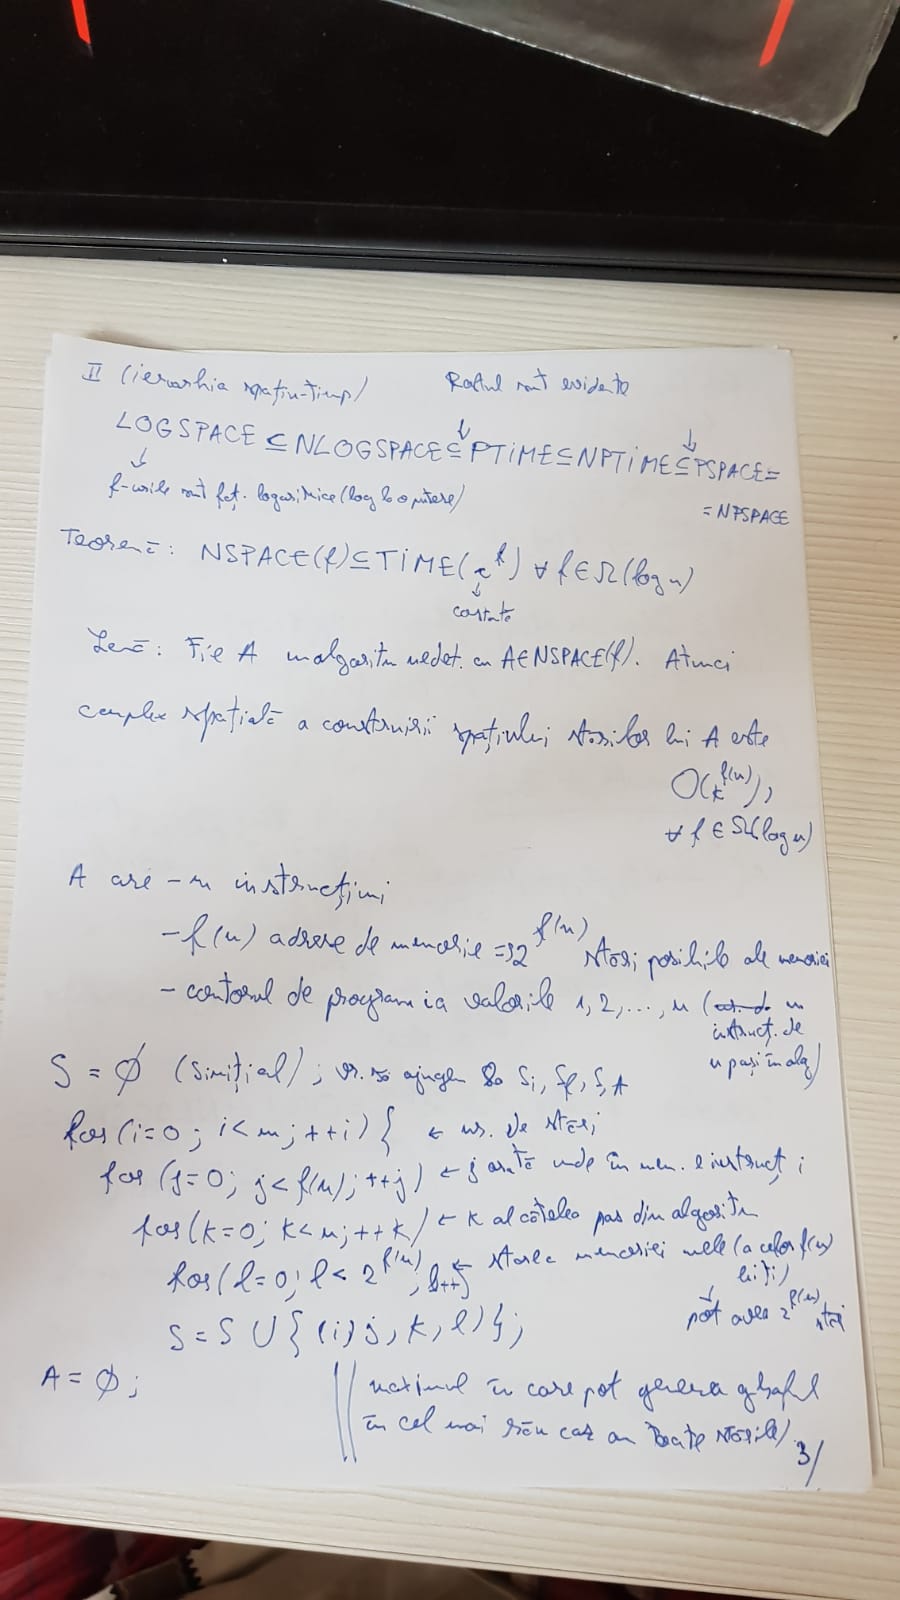 II (ierarhia spațiu-timp) Restul sunt evidente
LOGSPACE ⊆ NLOGSPACE ⊆ PTIME ⊆ NPTIME ⊆ PSPACE =
= NPSPACE
f-urile sunt fct. logaritmice (log la o putere)
Teoremă: NSPACE(f) ⊆ TIME(c^f) ∀ f ∈ Ω(log n)
constante
Lemă: Fie A un algoritm nedet. cu A ∈ NSPACE(f). Atunci
complex spațială a construirii spațiului stărilor lui A este
O(k^f(n)),
∀ f ∈ Ω(log n)
A are - m instrucțiuni
- f(n) adrese de memorie => 2^f(n) stări posibile ale memoriei
- contorul de program ia valorile 1, 2, ..., n (
instrucț. de
n pași în alg)
S = ∅ (inițial); să ajungem la Si, Sf, S, A
for (i=0; i<m; ++i) { ← nr. de stări
for (j=0; j<f(n); ++j) ← j arată unde în mem. e instrucț i
for (k=0; k<n; ++k) ← k al câtelea pas din algoritm
for (l=0; l<2^f(n); l++) ← starea memoriei mele (a celor f(n)
biți)
pot avea 2^f(n) stări
S = S ∪ {(i, j, k, l)};
A = ∅; // maximul în care pot genera graful
în cel mai rău caz cu toate stările)
3/